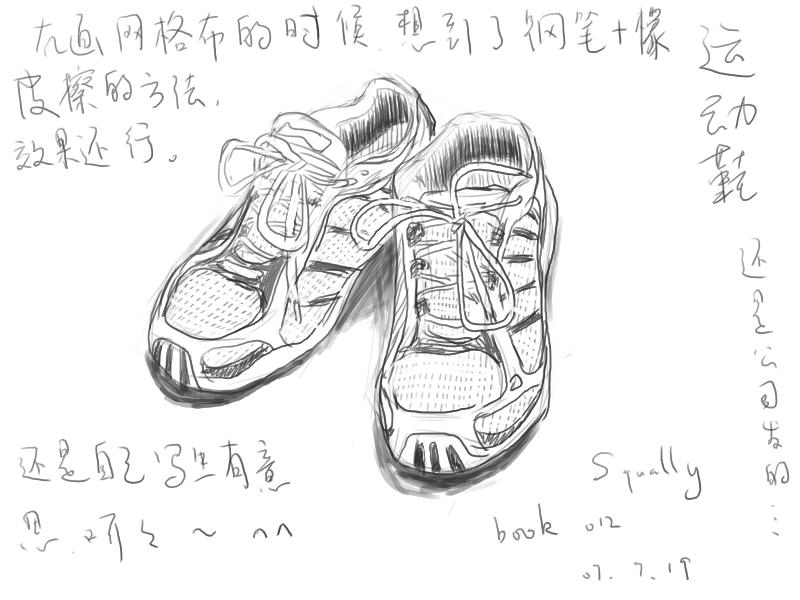 在画网格布的时候,想到了钢笔+橡
皮擦的方法,
效果还行。
运动鞋
还是公司发的…
还是自己写生有意
思,呵々~^^
Squally
book 012
07.7.19